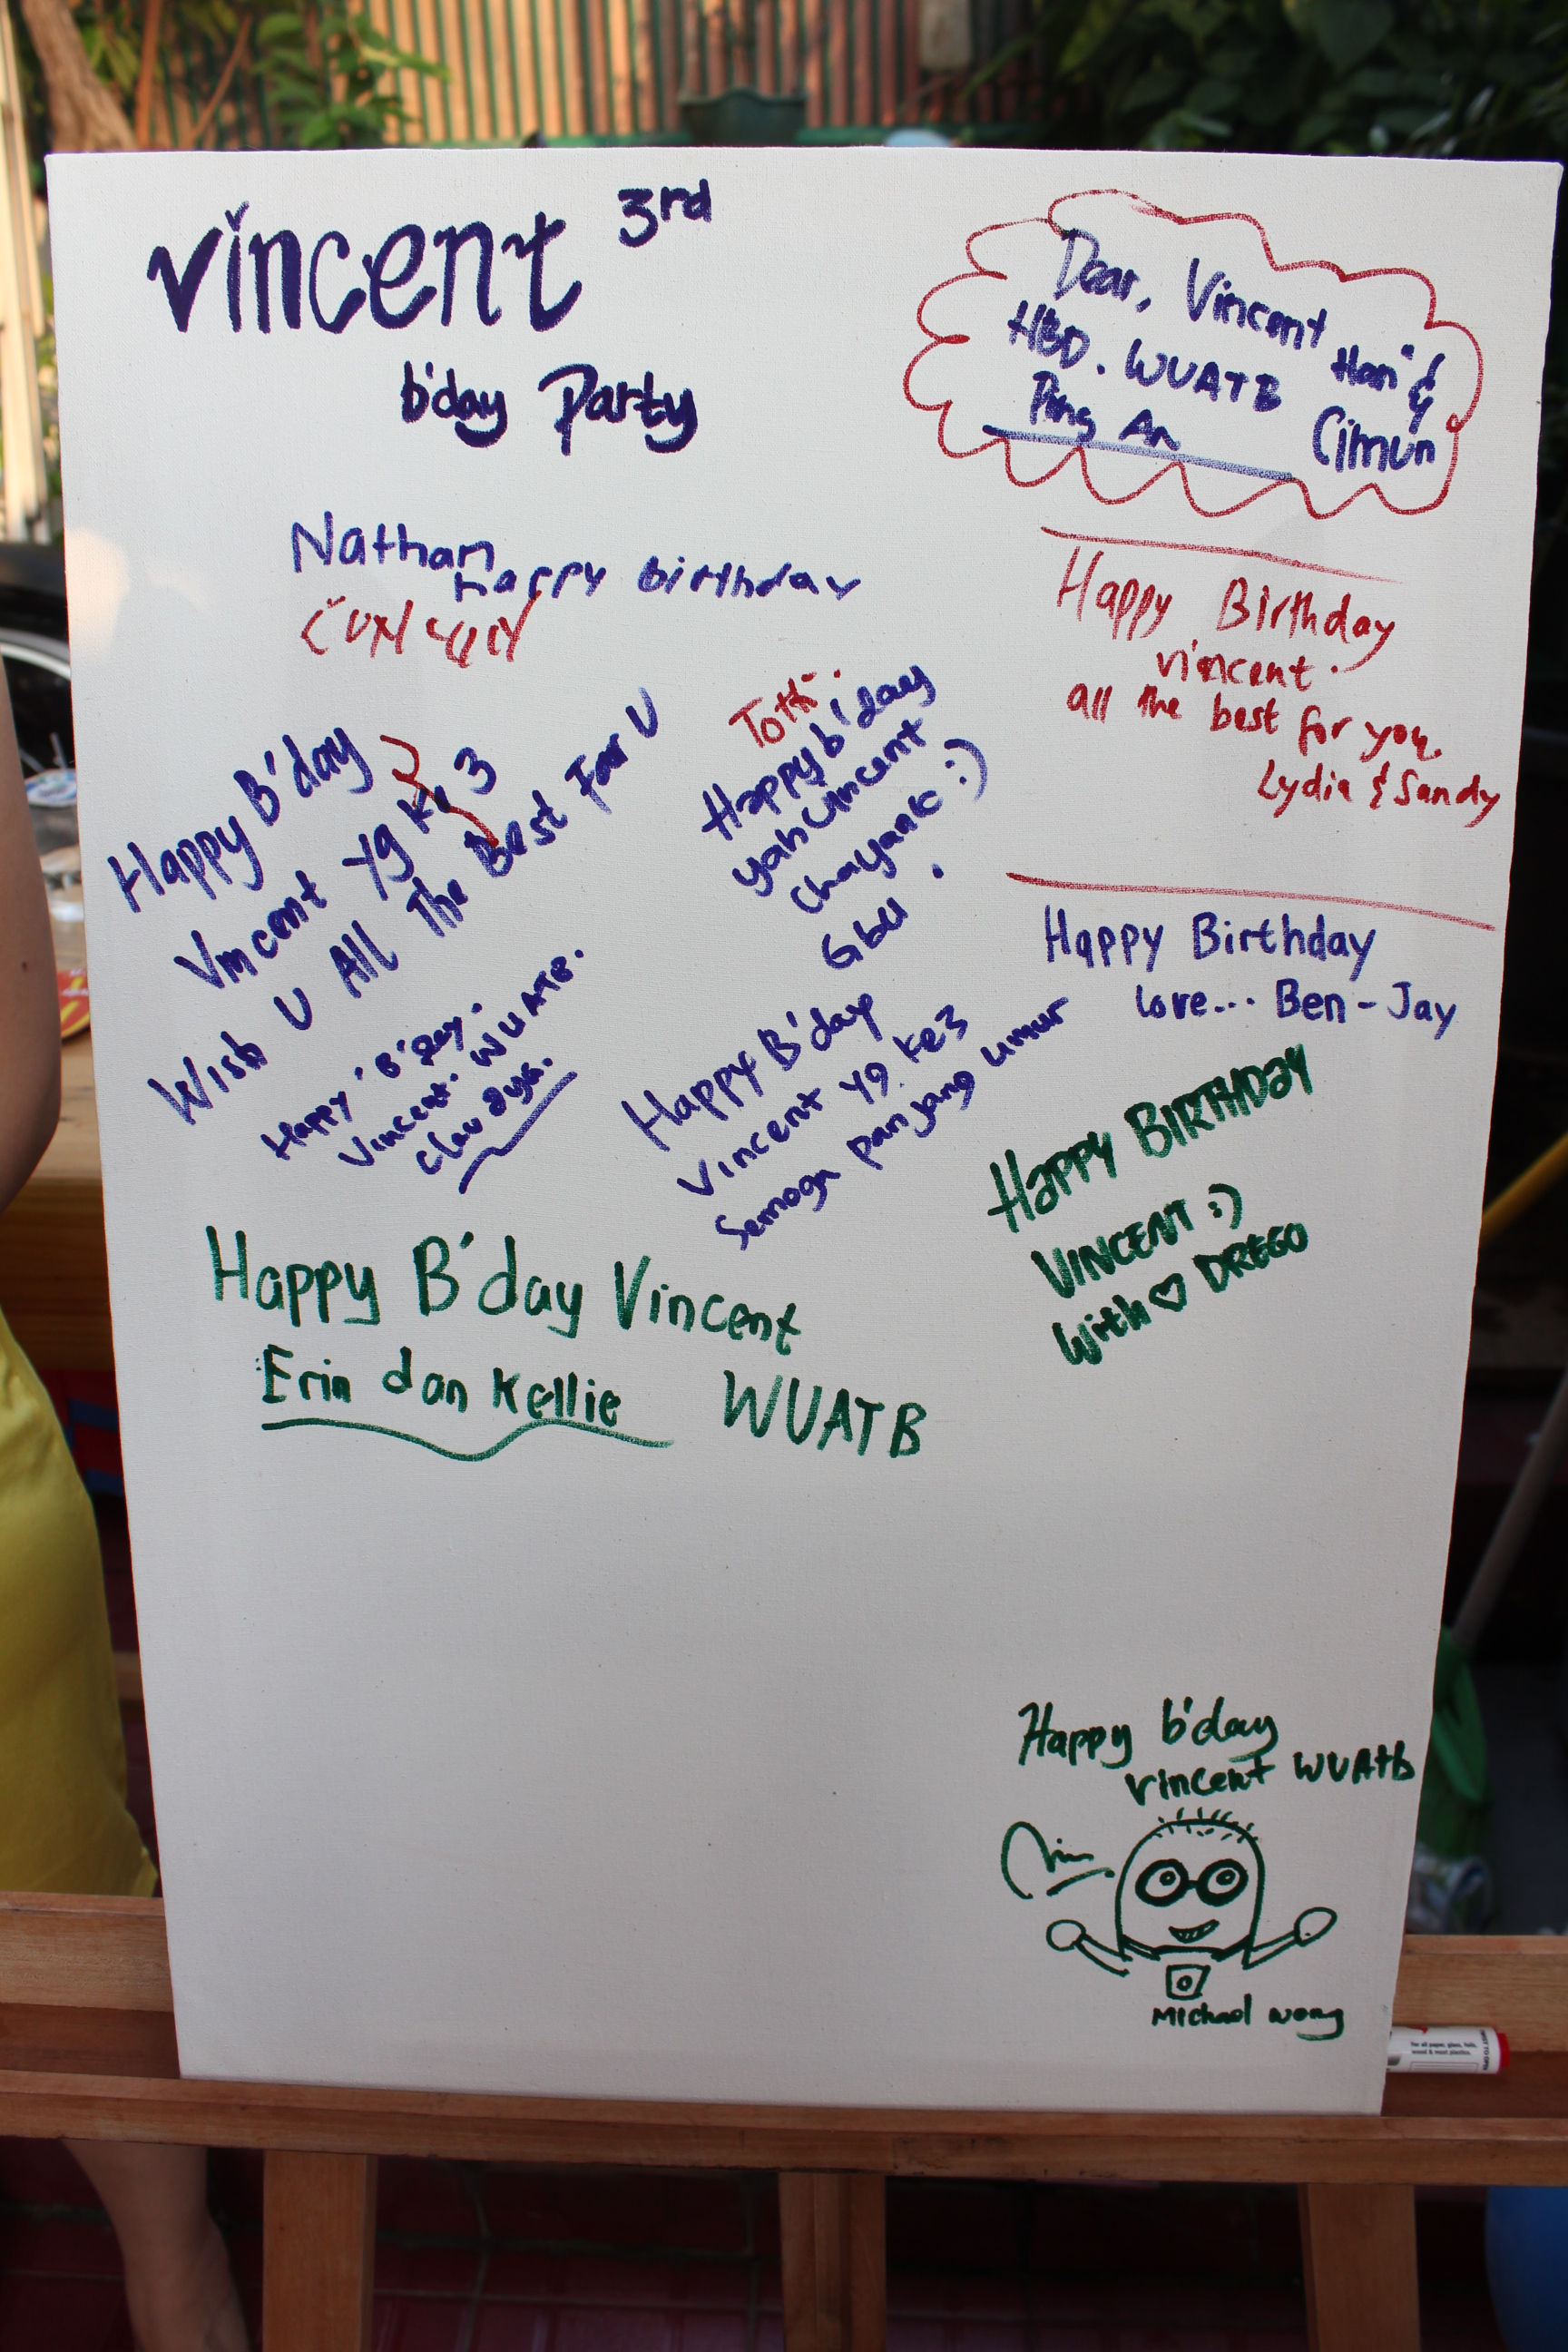 Vincent 3rd
b'day Party
Dear, Vincent
HBD. WUATB
Ping An
Han &
Cimun
Nathan
happy birthday
Happy Birthday
Vincent.
all the best for you.
Lydia & Sandy
Happy B'day
Vincent Yg ke 3
Wish U All The Best For U
Totti
Happy b'day
yah Vincent
Chayank :)
Gbu
Happy Birthday
love... Ben-Jay
Happy B'day.
Vincent. WUATB.
Happy B'day
Vincent Yg. ke3
Semoga panjang umur
HAPPY BIRTHDAY
VINCENT :)
With ♡ DREGO
Happy B'day Vincent
Erin dan Kellie WUATB
Happy b'day
vincent WUATB
Michael Wong